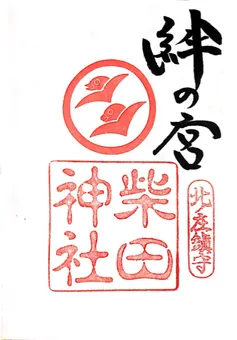 絆の宮
柴田
神社
北庄鎮守